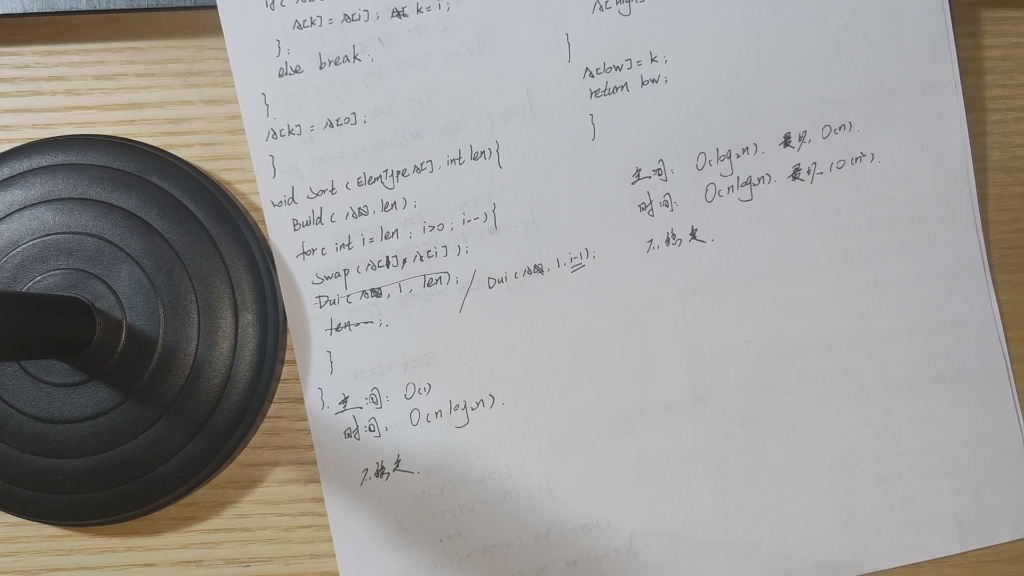 A[k] = A[i]; k = i;
};
else break;
}
A[k] = A[0];
}
void Sort (ElemType A[], int len){
Build (A, len);
for (int i = len ; i>0 ; i--){
Swap (A[1], A[i]);
Dui (A, 1, len); / Dui (A, 1, i-1);
len--;
}
}.
空间: O(1)
时间: O(n log₂n).
不稳定.
}
A[low] = k;
return low;
}
空间: O(log₂n). 最坏, O(n).
时间: O(nlog₂n). 最坏 O(n²).
不稳定.